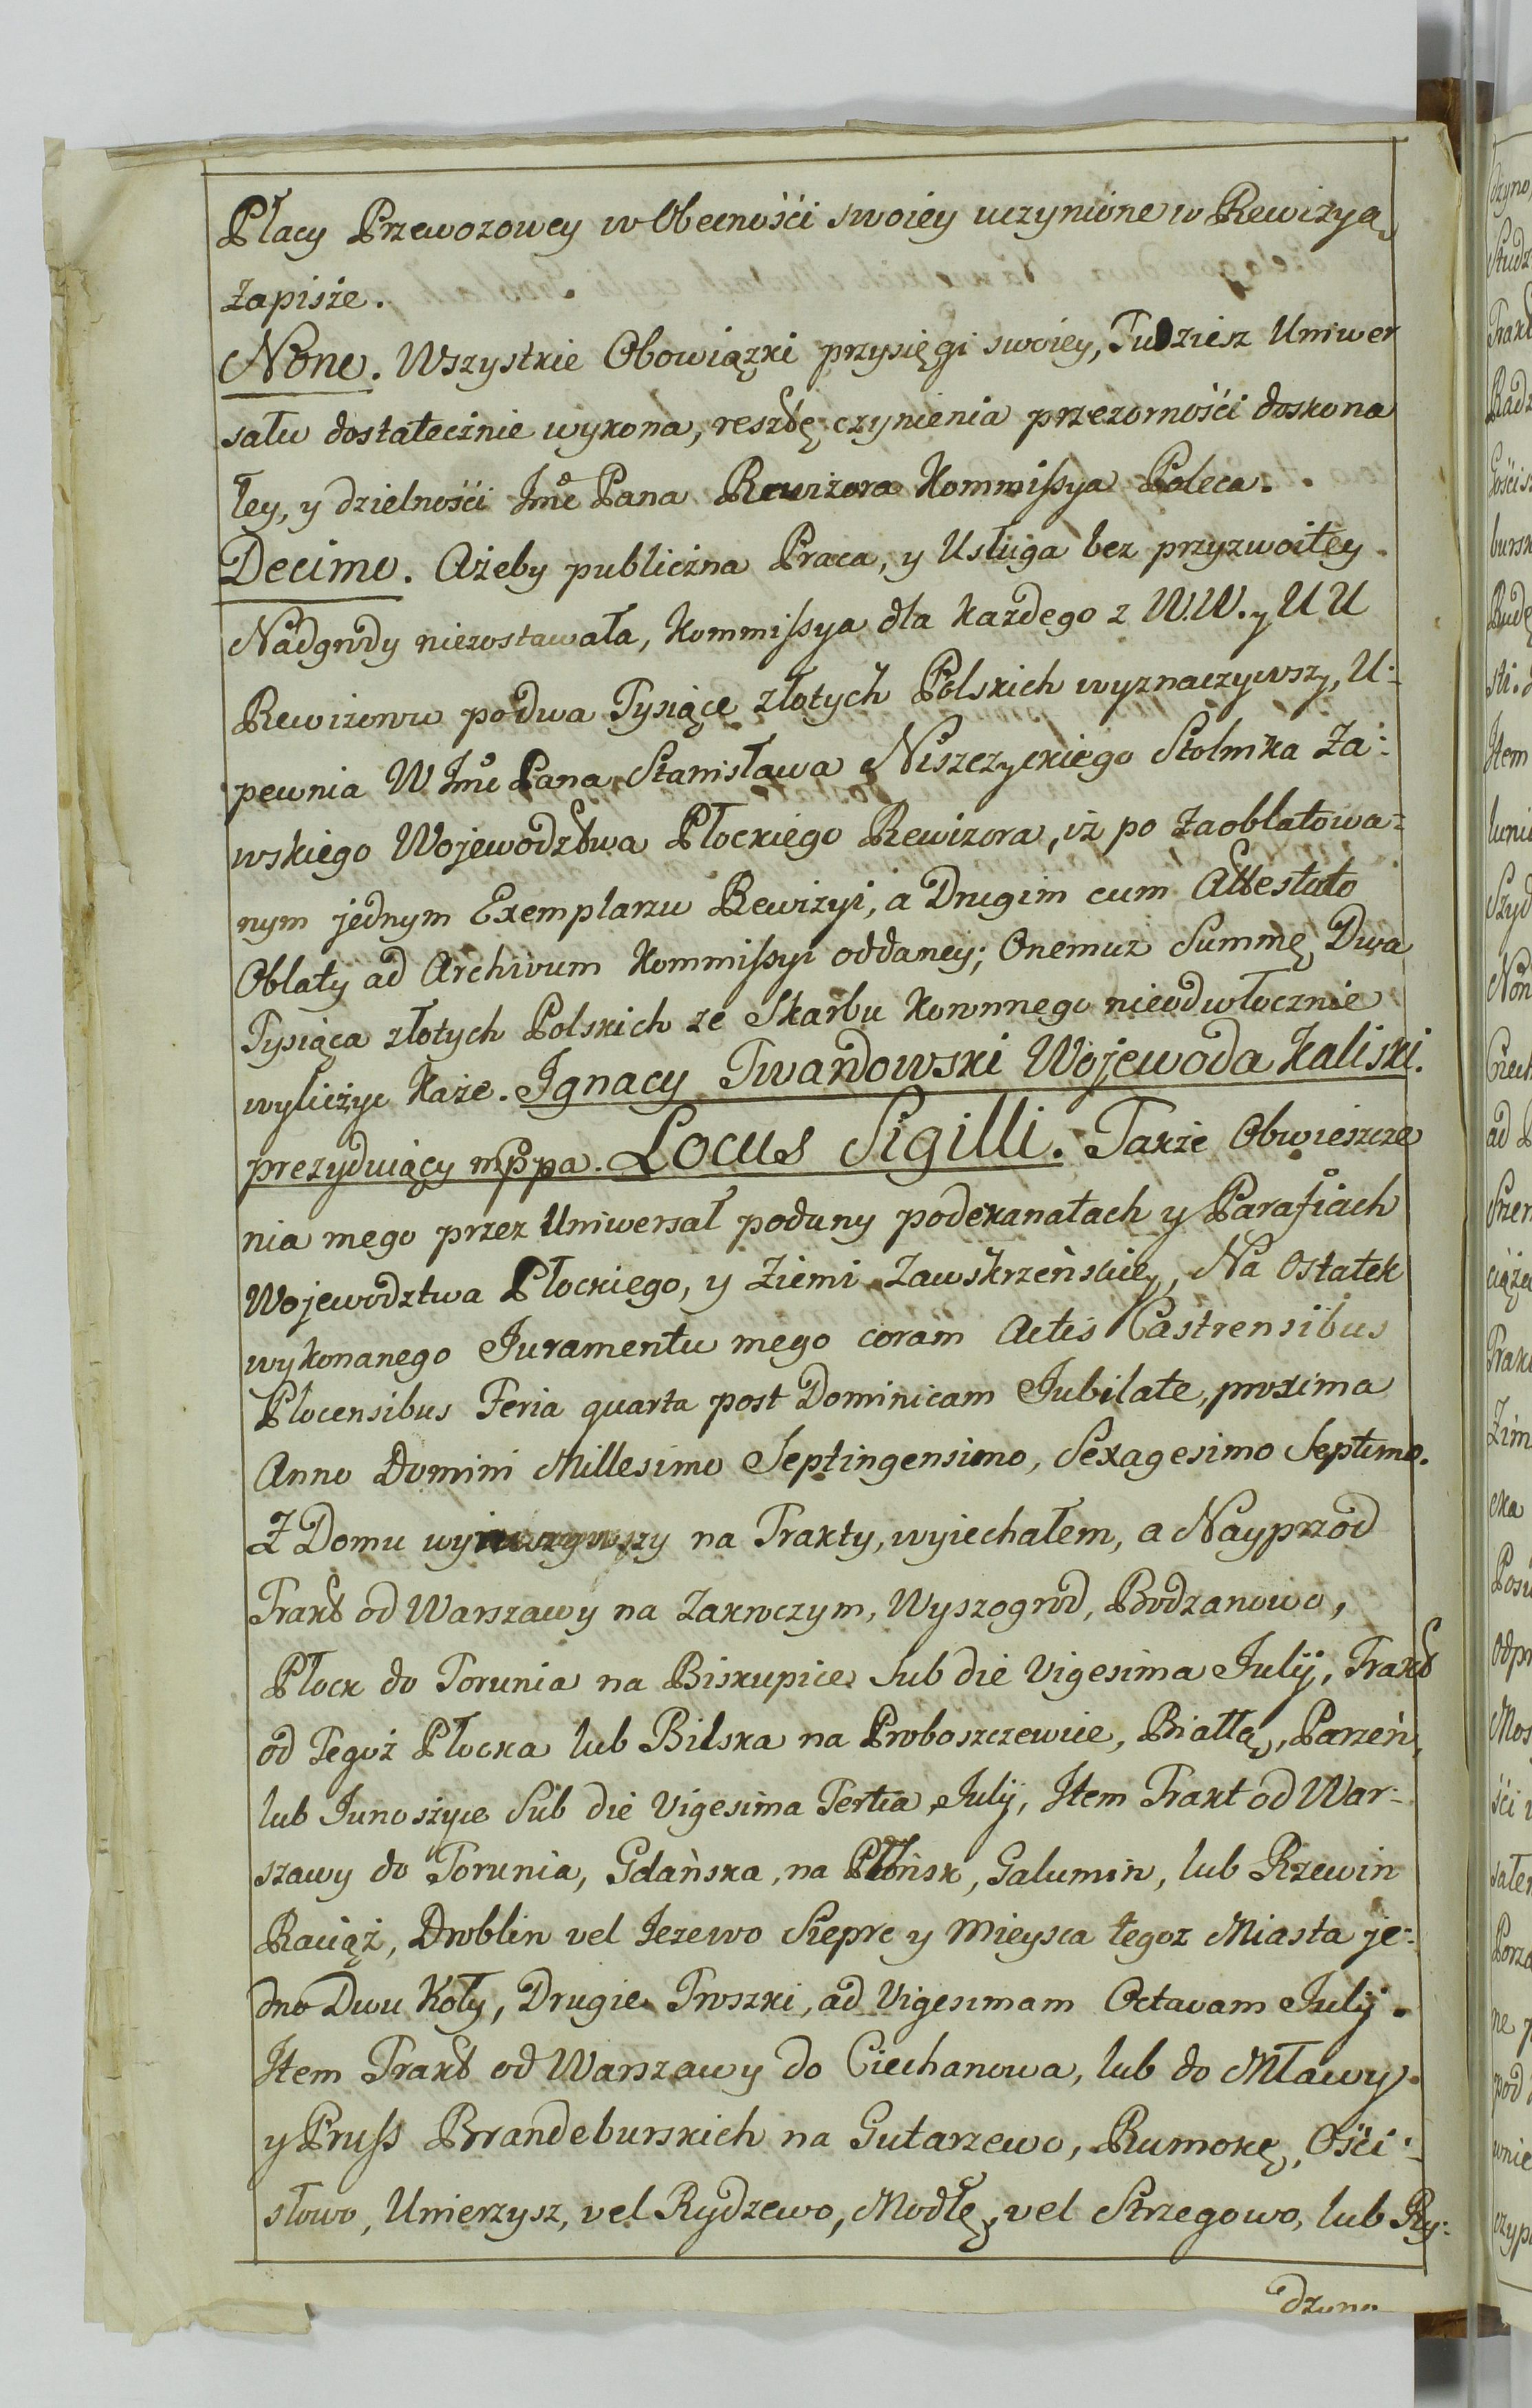 Płacy Przewozowey w Obecnośći swoiey uczynione w Rewizyą
zapisze.
Nono. Wszystkie Obowiązki przysięgi swoiey, Tudziesz Uniwer
sału dostatecznie wykona, resztę czynienia przezornośći doskona
łey, y dzielnośći Jmć Pana Rewizora Kommissya Poleca.
Decimo. Ażeby publiczna Praca, y Usługa bez przyzwoitey
Nadgrody niezostawała, Kommissya dla każdego z W.W. y UU
Rewizorow po dwa Tysiące złotych Polskich wyznaczywszy, U:
pewnia W Jmć Pana Stanisława Niszczyckiego Stolnika Za:
wskiego Wojewodztwa Płockiego Rewizora, iż po zaoblatowa:
nym jednym Exemplarzu Rewizyi, a Drugim cum Attestato
Oblaty ad Archivum Kommissyi oddaney; Onemuz Summę Dwa
Tysiąca złotych Polskich ze Skarbu Koronnego nieodwłocznie
wyliczyc każe. Ignacy Twardowski Wojewoda Kaliski.
prezyduiący mppa. Locus Sigilli. Takze Obwieszcze
nia mego przez Uniwersał podany podekanatach y Parafiach
Wojewodztwa Płockiego, y Ziemi Zawskrzeńskiey, Na Ostatek
wykonanego Juramentu mego coram Actis Castrensibus
Plocensibus Feria quarta post Dominicam Jubilate, proxima
Anno Domini Millesimo Septingensimo, Sexagesimo Septimo.
Z Domu na Trakty, wyiechałem, a Nayprzod
Trakt od Warszawy na Zakroczym, Wyszogrod, Bodzanowo,
Płock do Torunia na Biskupice Sub die Vigesima Julij, Trakt
od Tegoż Płocka lub Bilska na Proboszczewice, Białłą, Parzeń,
lub Junoszyce Sub die Vigesima Tertia Julij, Item Trakt od War:
szawy do Torunia, Gdańska, na Płońsk, Galumin, lub Rzewin
Raciąż, Droblin vel Jezewo Sieprc y Mieysca tegoz Miasta je:
dno Dwu Koły, Drugie Troszki, ad Vigesimam Octavam Julij.
Item Trakt od Warszawy do Ciechanowa, lub do Mławy
y Pruss Brandeburskich na Gutarzewo, Rumokę, Ośći:
słowo, Unierzysz, vel Rydzewo, Modłę, vel Strzegowo, lub Ry:
dzyno